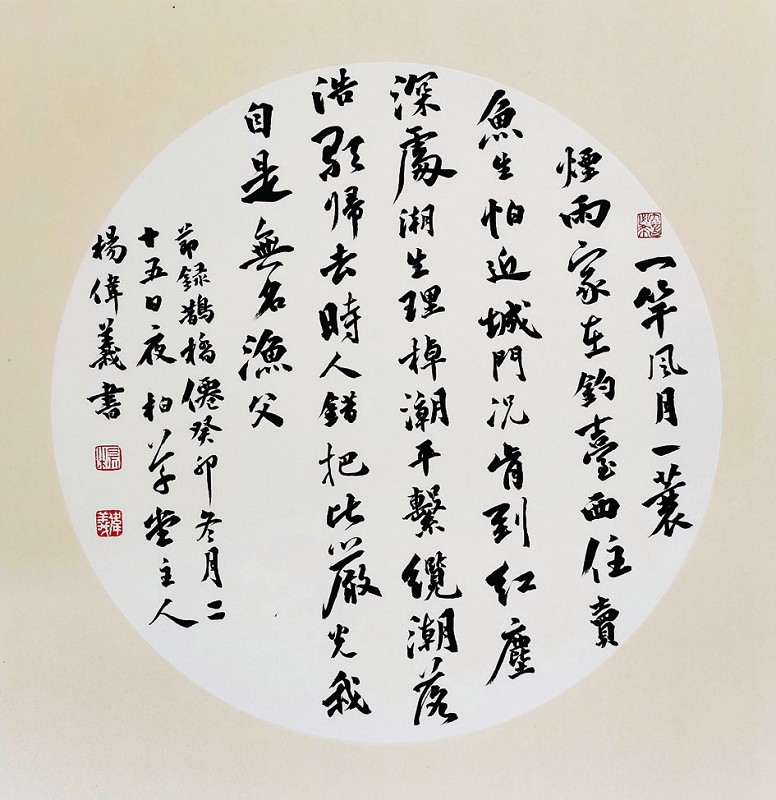 一竿风月一蓑
煙雨家在釣臺西住賣
魚生怕近城門况肯到紅塵
深處潮生理棹潮平繫纜潮落
浩歌歸去時人錯把比嚴光我
自是無名漁父
節録鵲橋僊癸卯冬月二
十五日夜柏草堂主人
楊偉義書